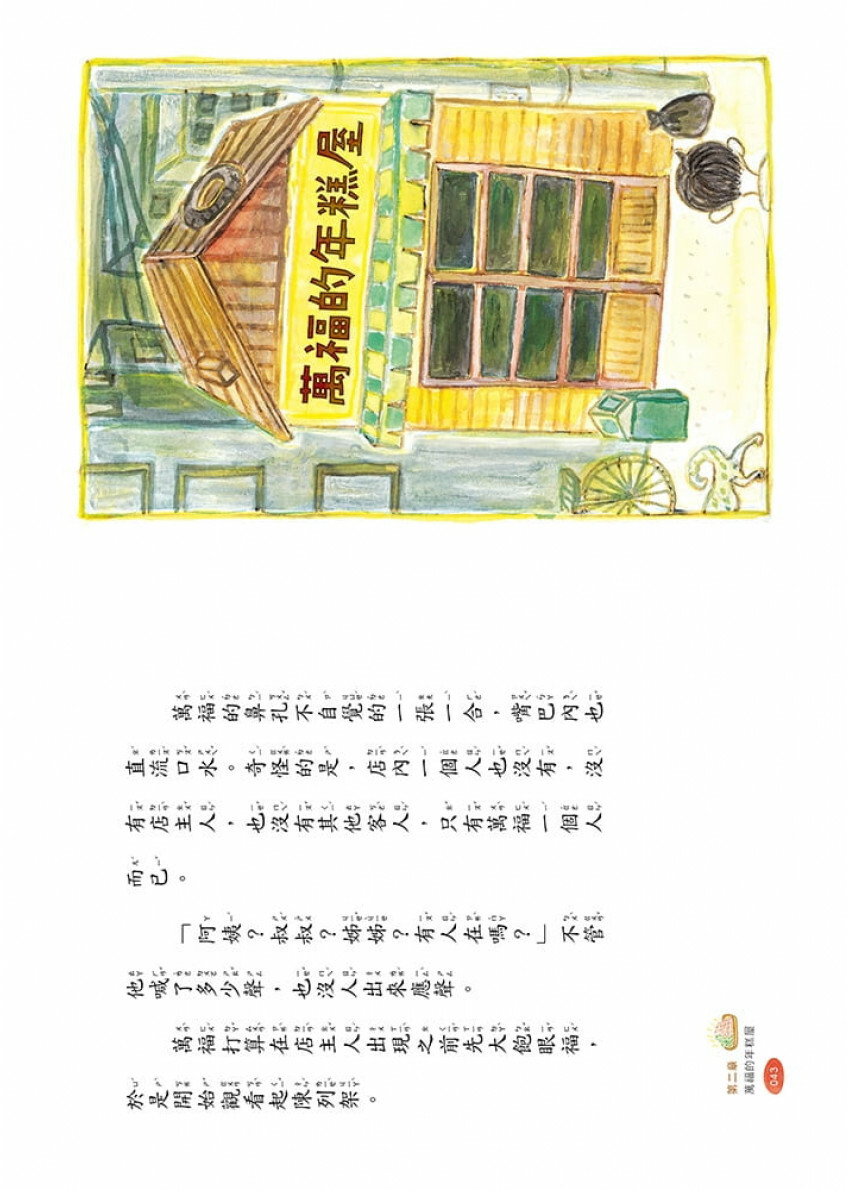 萬福的年糕屋
萬福的鼻孔不自覺的一張一合，嘴巴內也
直流口水。奇怪的是，店內一個人也沒有，沒
有店主人，也沒有其他客人，只有萬福一個人
而已。
「阿姨？叔叔？姊姊？有人在嗎？」不管
他喊了多少聲，也沒人出來應聲。
萬福打算在店主人出現之前先大飽眼福，
於是開始觀看起陳列架。
第二章
萬福的年糕屋
043